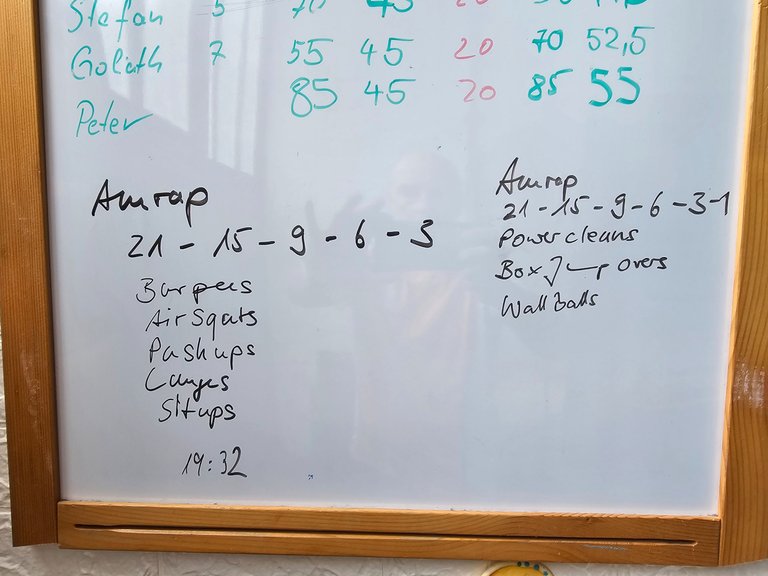 Stefan 5 70 45 20
Goliath 7 55 45 20 70 52,5
85 45 20 85 55
Peter
Amrap
21 - 15 - 9 - 6 - 3
Burpees
Air Sqats
Pashups
Lunges
Situps
19:32
Amrap
21 - 15 - 9 - 6 - 3 - 1
Powercleans
Box Jump overs
Wall Balls